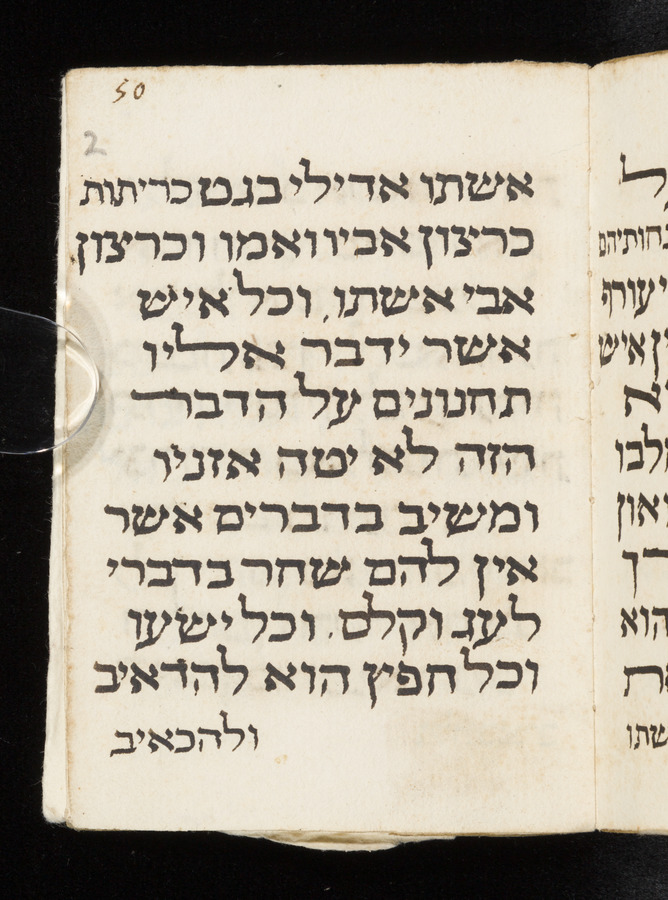 50
2
אשתו אדילי בגט כריתות
כרצון אביו ואמו וכרצון
אבי אשתו, וכל איש
אשר ידבר אליו
תחנונים על הדבר
הזה לא יטה אזניו
ומשיב בדברים אשר
אין להם שחר בדברי
לעג וקלס. וכל ישעו
וכל חפץ הוא להדאיב
ולהכאיב
יעורף
איש
לבו
און
הוא
שתו